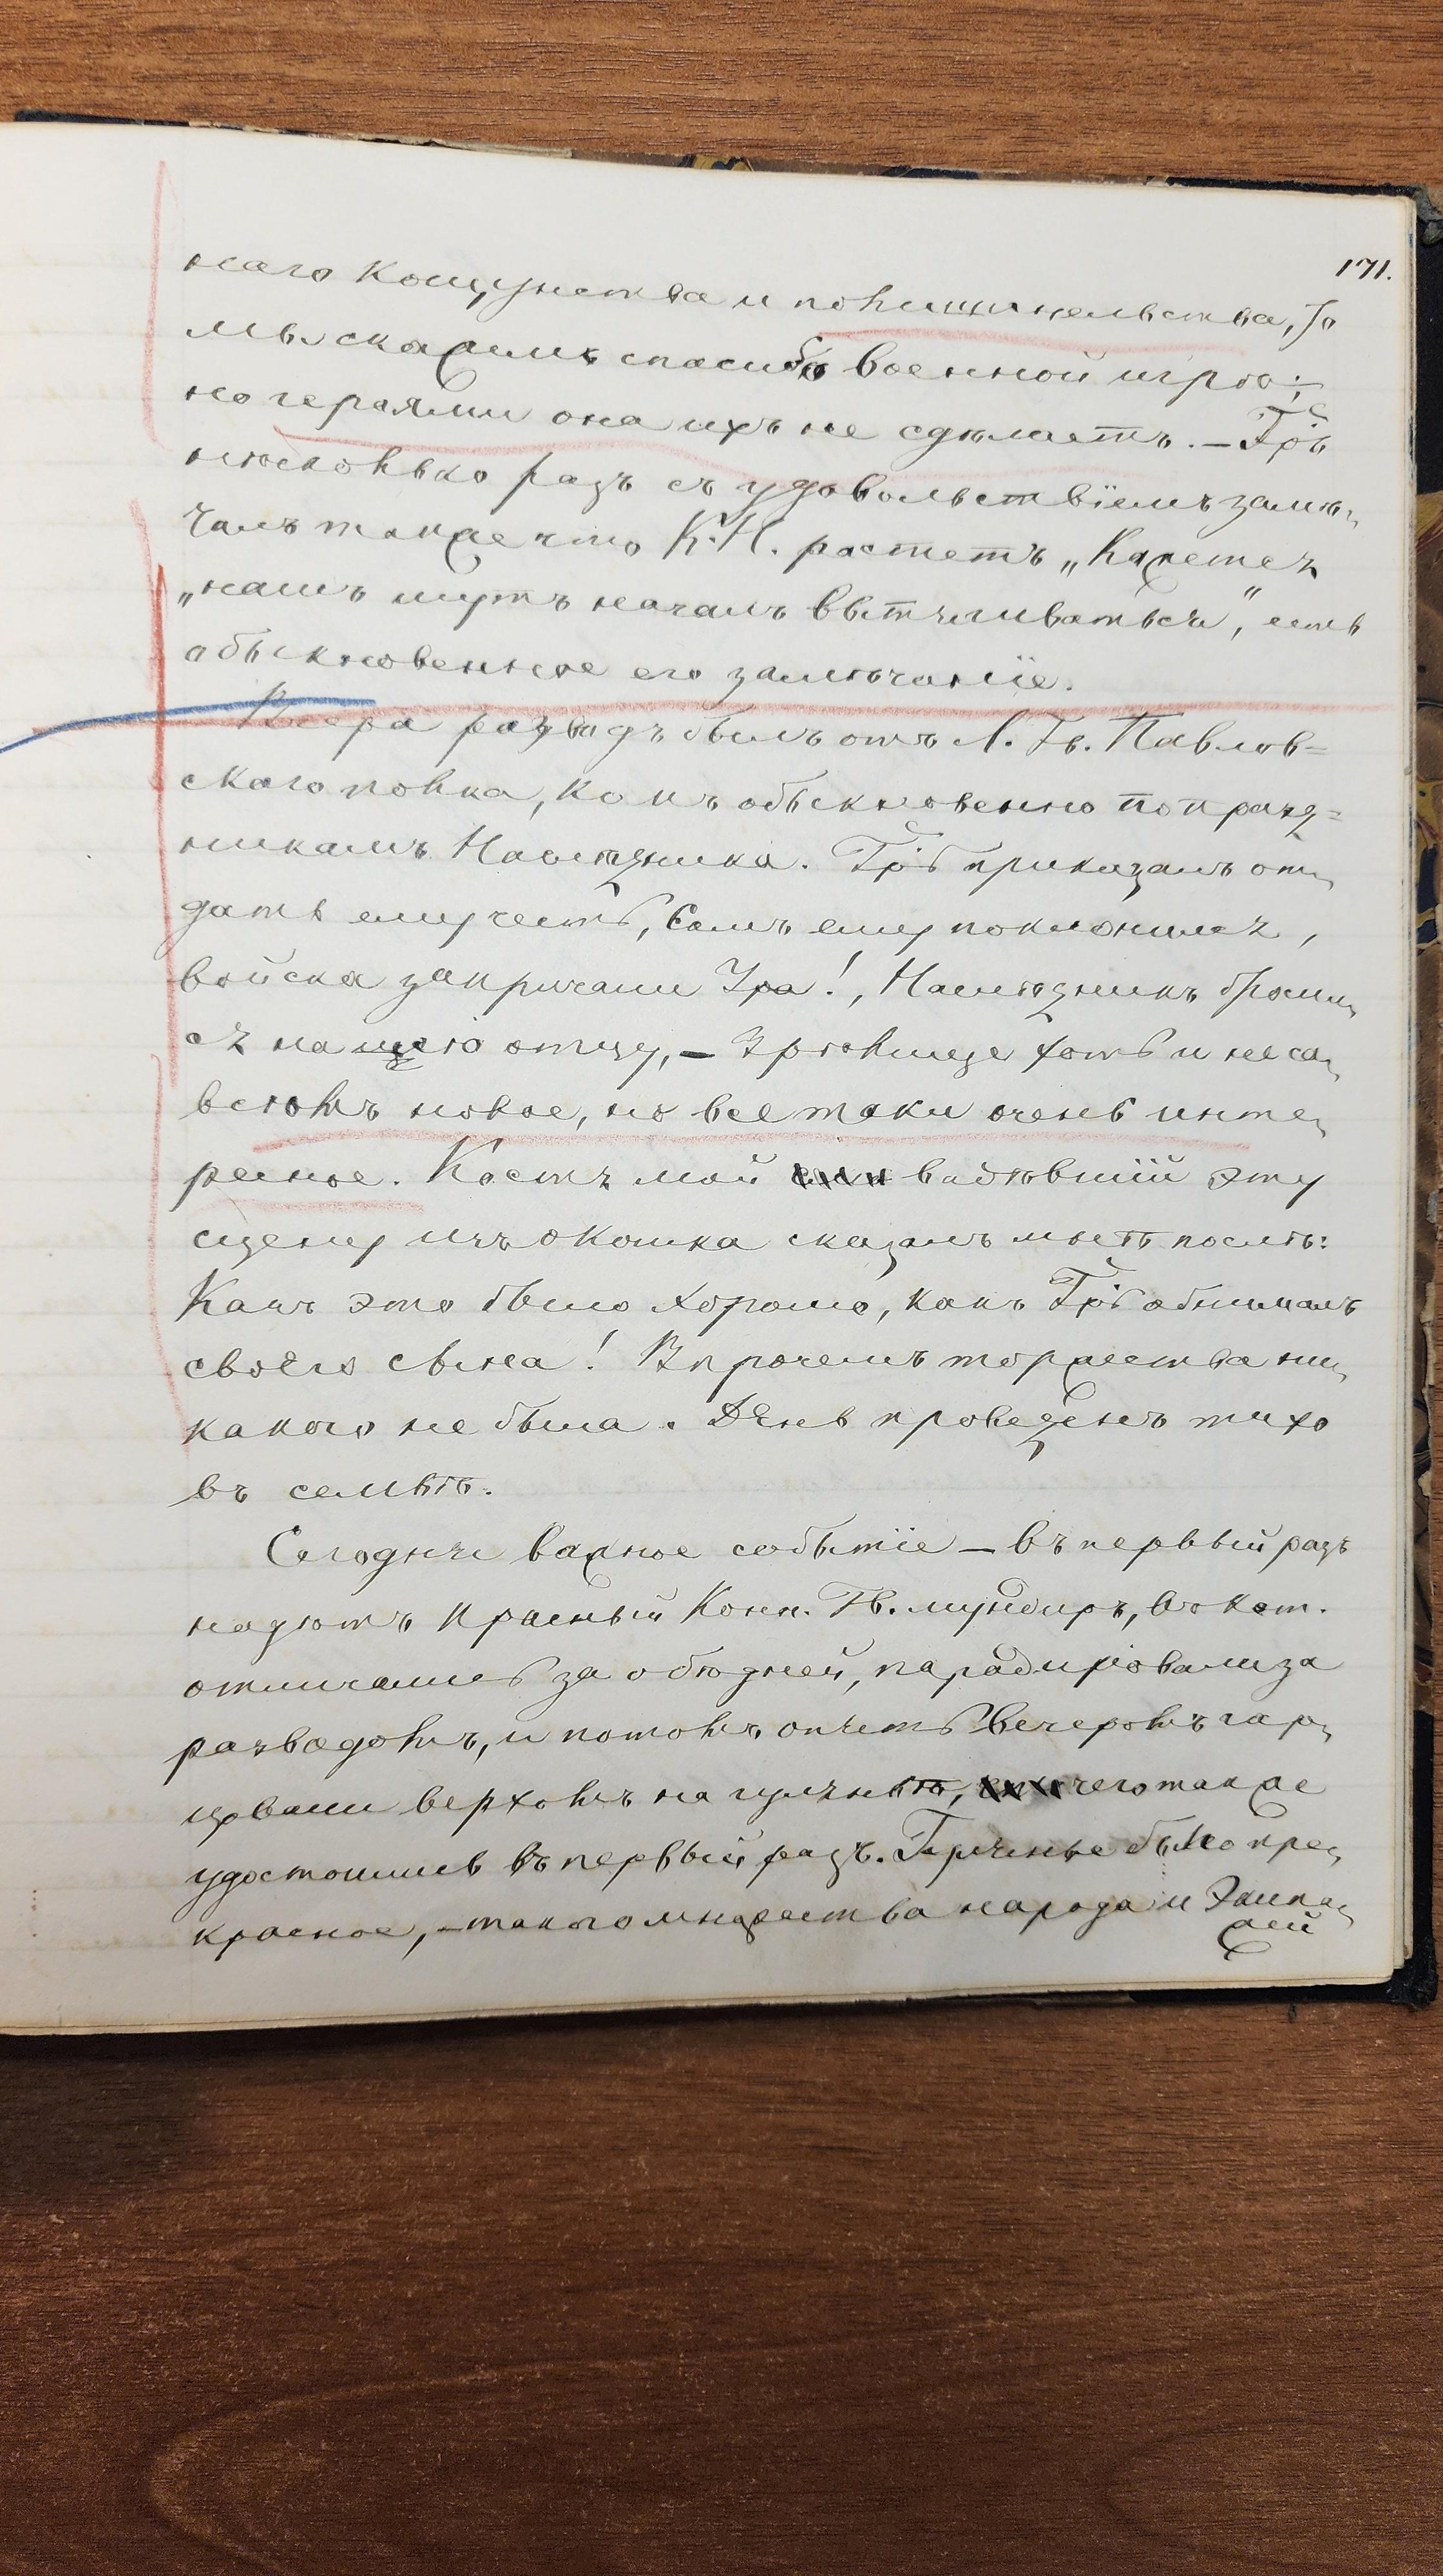 171.
наго кощунства и похитительства, то
мы скажемъ спасибо военной игрѣ;
но героями она ихъ не сдѣлаетъ. — Гоъ
нѣсколько разъ съ удовольствіемъ замѣ„
чалъ также что К. Н. растетъ „Кажется
„нашъ шутъ началъ вытягиваться", есть
обыкновенное его замѣчаніе.
Вчера разводъ былъ отъ Л. Гв. Павлов=
скаго полка, какъ обыкновенно по празд=
никамъ Наслѣдника. Гоь приказалъ от„
дать ему честь, Самъ ему поклонился,
войска закричали Ура!, Наслѣдникъ бросил„
ся на шею отцу, — Зрѣлище хоть и не со„
всѣмъ новое, но все таки очень инте„
ресное. Костя мой видѣвшій эту
сцену изъ окошка сказалъ мнѣ послѣ:
Какъ это было хорошо, какъ Гоь обнималъ
своего сына! Впрочемъ торжества ни„
какого не было. День проведенъ тихо
въ семьѣ.
Сегодня важное событіе — въ первый разъ
надѣтъ красный Конн. Гв. мундиръ, въ кот.
отличались за обѣдней, парадировали за
разводомъ, и потомъ опять вечеромъ гар„
цовали верхомъ на гуляньѣ, чего также
удостоились въ первый разъ. Гулянье было пре„
красное, — такого множества народа и Экипа„
жей